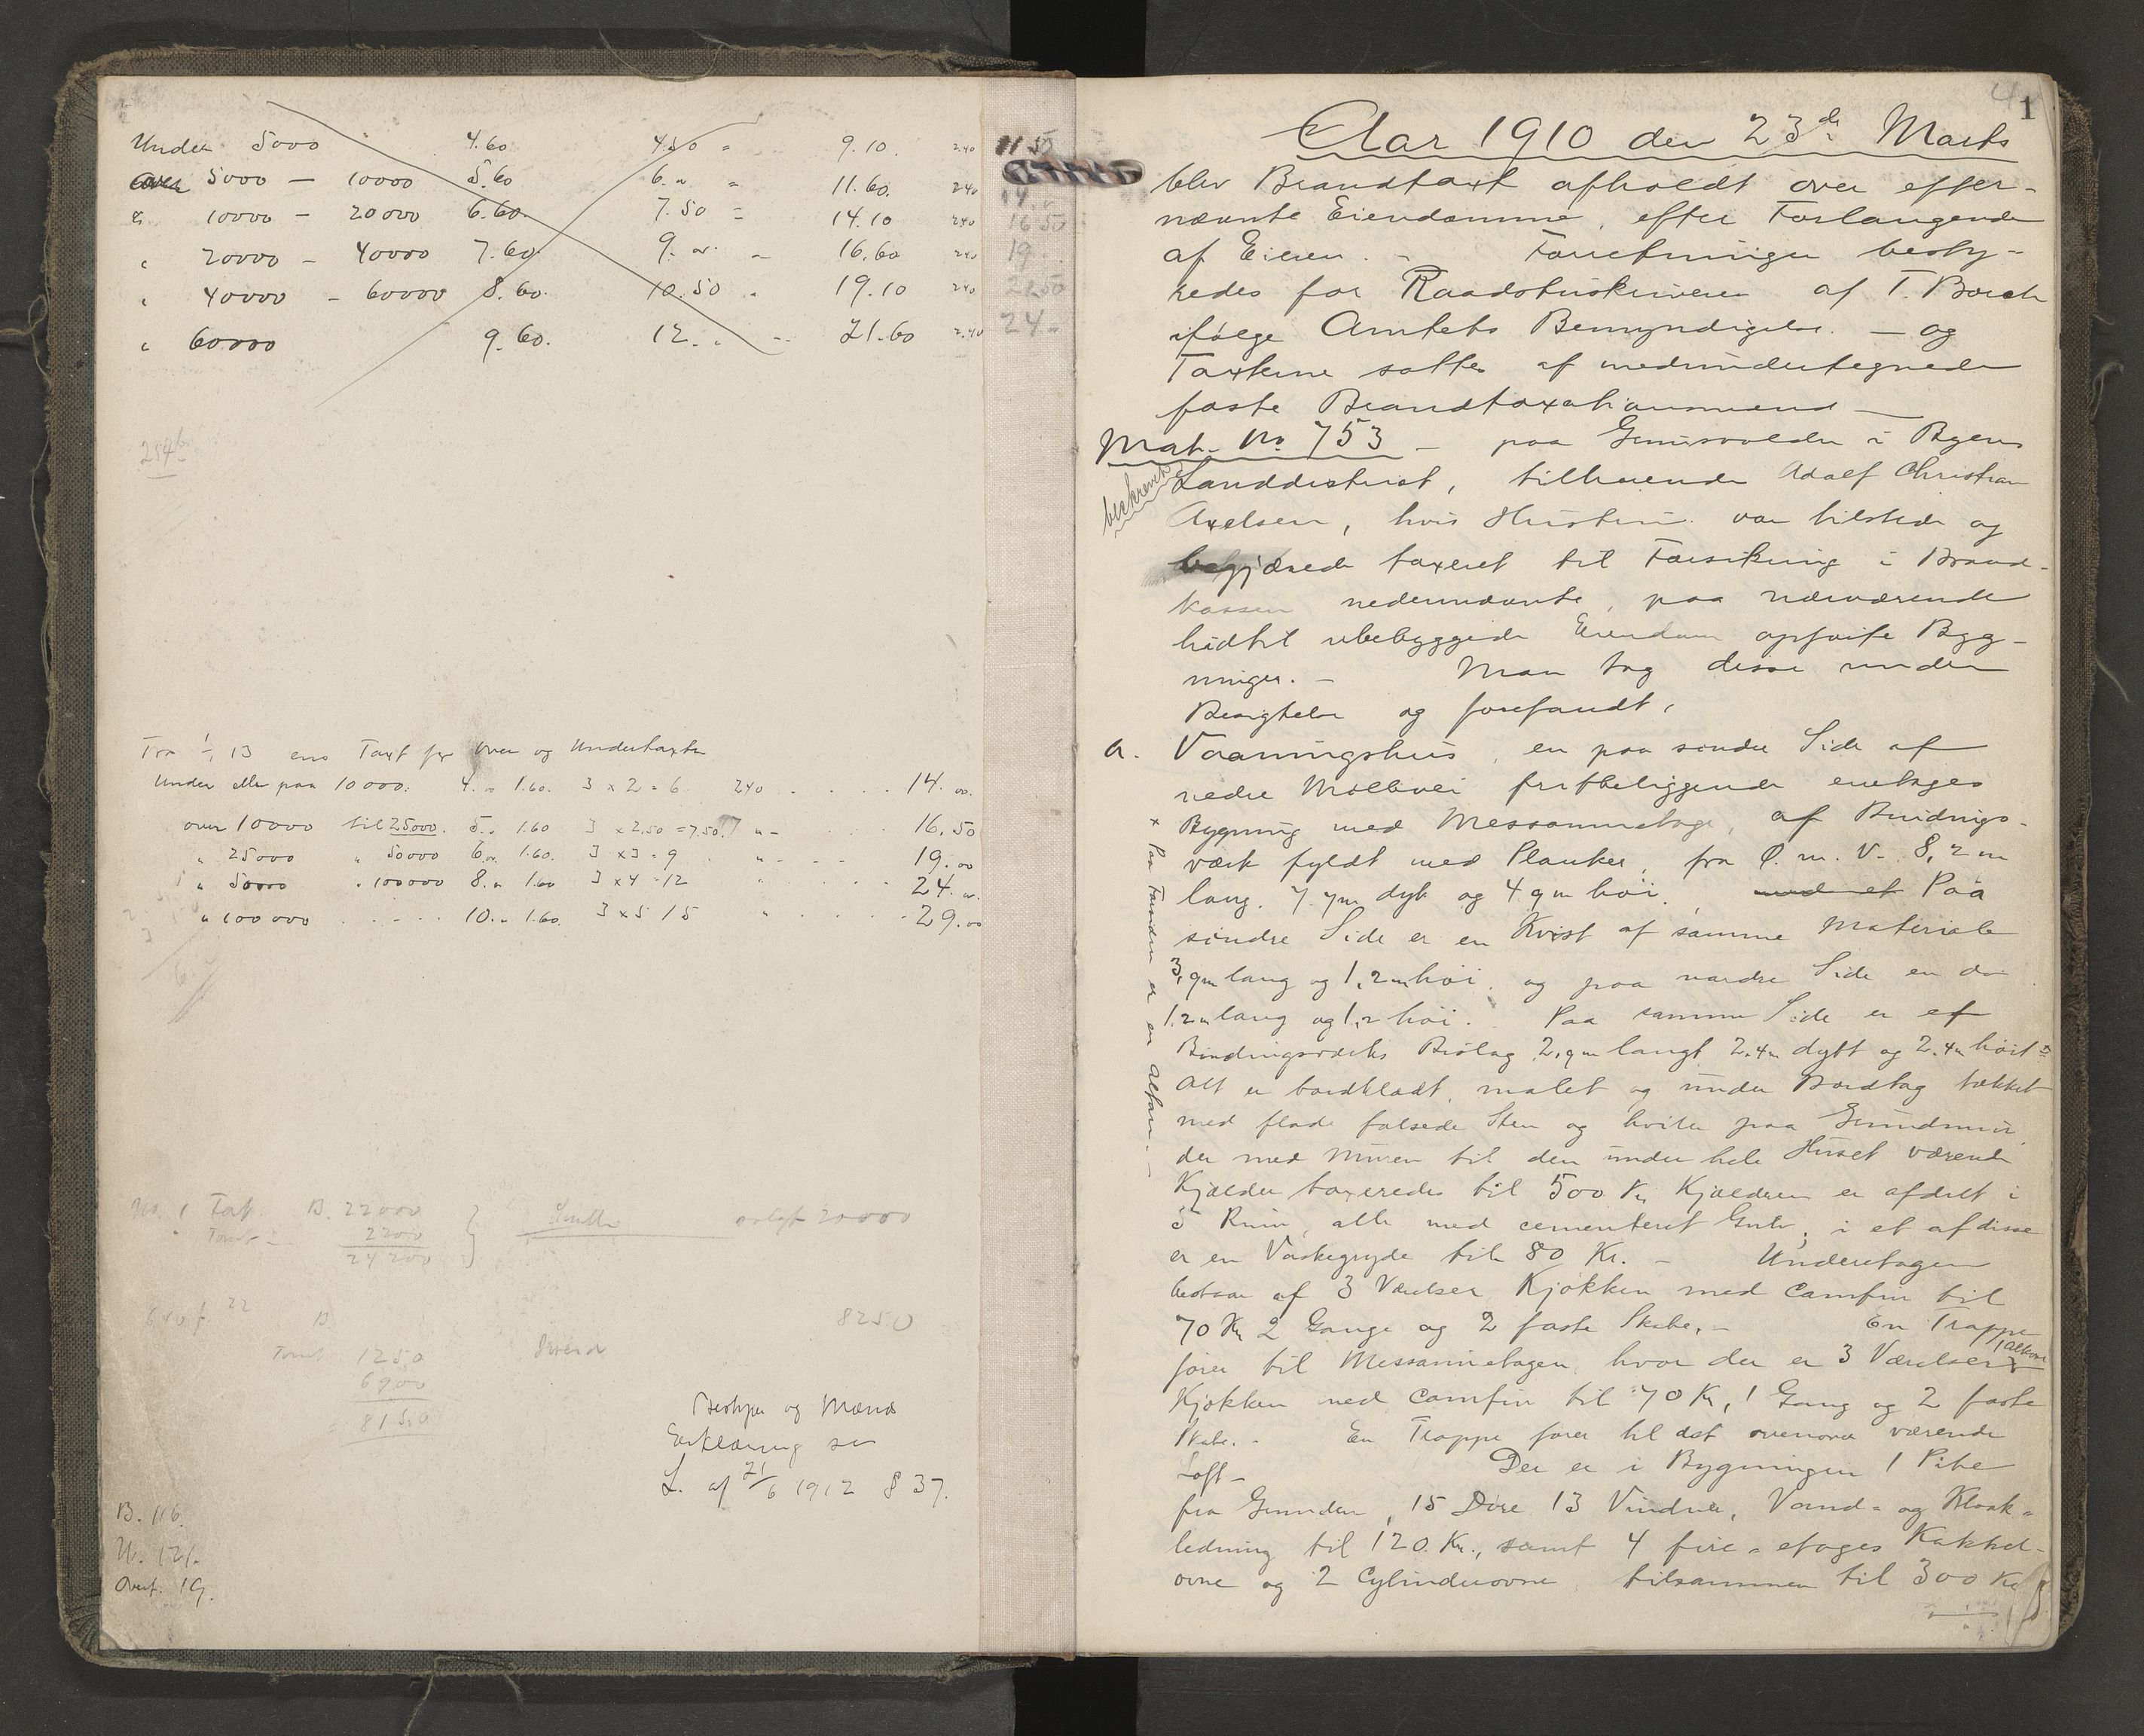 Under 5000 4.60 4.50 = 9.10. 2.40 11 50
5000 — 10000 5.60 6. „ = 11.60. 240 14. „
„ 10000 — 20000 6.60. 7.50 = 14.10 240 16 50
„ 20000 — 40000 7.60. 9. „ 16.60 240 19.
„ 40000 — 60000 8.60. 10.50 „ 19.10 240 21.50
„ 60000 9.60. 12. „ 21.60 2.40 24 -
254
Fra 1/1 13 ens Taxt for Over og Undertaxter
Under eller paa 10000. 4. „ 1.60. 3 x 2 = 6 240 14. 00.
over 10000 til 25000. 5. „ 1.60 3 x 2.50 = 7.50. „ 16.50
„ 25000 „ 50000 6. „ 1.60. 3 x 3 = 9 „ 19.00
„ 50000 „ 100000 8. „ 1.60 3 x 4 = 12 „ 24. 00.
„ 100000 10. „ 1.60. 3 x 5 15 „ 29.00
B. 22000
2200
24200
solgt 20000
22 B. 8250
Tomt 1250
6900
8150
Bestyrer og Mænds
Erklæring se
L. af 21/6 1912 § 37.
B. 116.
U. 121.
Overt. 19.
1
Aar 1910 den 23de Marts
blev Brandtaxt afholdt over efter-
nævnte Eiendomme, efter Forlangende
af Eieren. - Forretningen besty-
redes for Raadstuskriveren af T. Borch
ifølge Amtets Bemyndigelse. — og
Taxterne sattes af medundertegnede
faste Brandtaxationsmænd —
Mat. No. 753 — paa i Byens
Landdistrict, tilhørende Adolf Christian
Axelsen, hvis Hustru var tilstede og
beskrevet
begjærede taxeret til Forsikring i Brand-
kassen nedennævnte, paa nærværende
hidtil ubebyggede Eiendom opførte Byg-
ninger. - Man tog disse under
Besigtelse og forefandt,
a. Vaaningshus, en paa søndre Side af
nedre Møllevei fritbeliggende enetages
Bygning med Messaninetage, af Bindings-
værk fyldt med Planker, fra Ø. m. V. 8,2 m
lang. 7,7m dyb og 4,9m høi. med et Paa
søndre Side er en Kvist af samme Materiale
3,9m lang og 1,2m høi. og paa nordre Side en do
1,2m lang og 1,2 høi. Paa samme Side er et
Bindingsværks Bislag 2,9m langt 2.4m dybt og 2.4m høit
Alt er bordklædt, malet og under Bordtag tækket
med flade falsede Sten og hviler paa Grundmur
der med Muren til den under hele Huset værende
Kjælder taxeredes til 500 Kr. Kjælderen er afdelt i
5 Rum, alle med cementeret Gulv; i et af disse
er en Vaskegryde til 80 Kr. - Underetagen
bestaar af 3 Værelser Kjøkken med Comfur til
70 Kr 2 Gange og 2 faste Skabe, - En Trappe
fører til Messaninetagen, hvor der er 3 Værelser, 1 Alkove
Kjøkken med Comfur til 70 Kr, 1 Gang og 2 faste
Skabe. - En Trappe fører til det ovenover værende
Loft - Der er i Bygningen 1 Pibe
fra Grunden, 15 Døre 13 Vinduer, Vand- og Kloak-
ledning til 120 Kr., samt 4 fire-etages Kakkel-
ovne og 2 Cylinderovne tilsammen til 300 Kr
x Paa Forsiden er en Altan. -